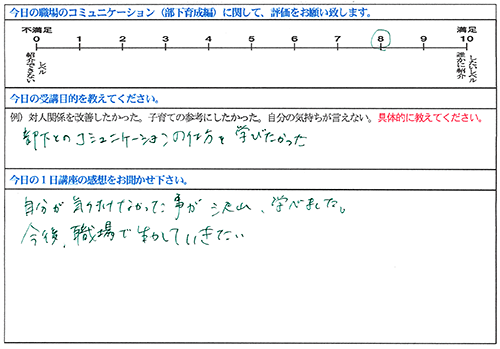 今日の職場のコミュニケーション（部下育成編）に関して、評価をお願い致します。
不満足 満足
0 1 2 3 4 5 6 7 8 9 10
紹介できない
レベル
誰かに紹介
したいレベル
今日の受講目的を教えてください。
例）対人関係を改善したかった。子育ての参考にしたかった。自分の気持ちが言えない。具体的に教えてください。
部下とのコミュニケーションの仕方を学びたかった
今日の１日講座の感想をお聞かせ下さい。
自分が気付けなかった事が沢山、学べました。
今後、職場で生かしていきたい